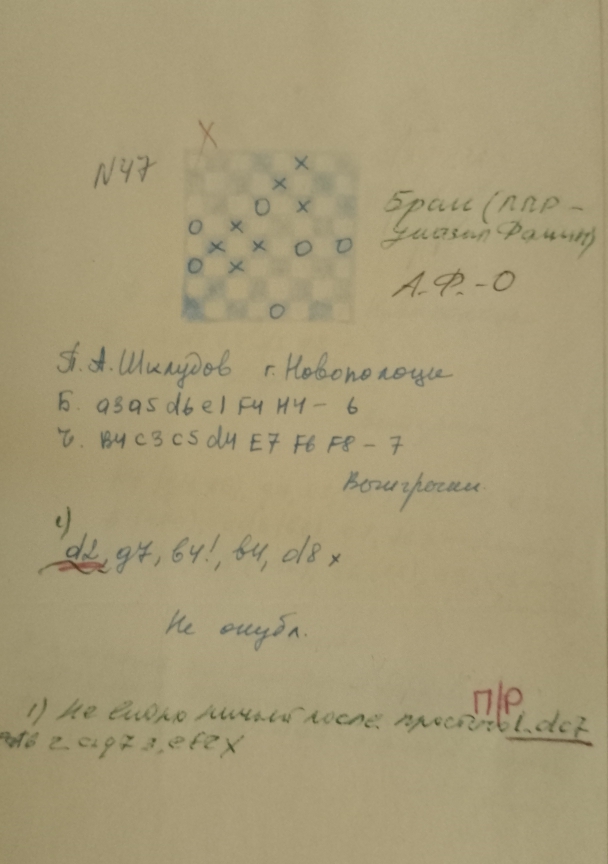 N47
Брак (ППР -
указал Фомин)
А.Ф. - О
П. А. Шклудов г. Новополоцк
Б. а3 а5 d6 e1 F4 H4 - 6
Ч. В4 С3 С5 d4 E7 F6 F8 - 7
Выигрыш.
1)
d2, g7, b4!, b4, d8 x
Не опубл.
П/Р
1) Не видно ничьей после простого 1. dc7
2. c:g7 3. ef2 X